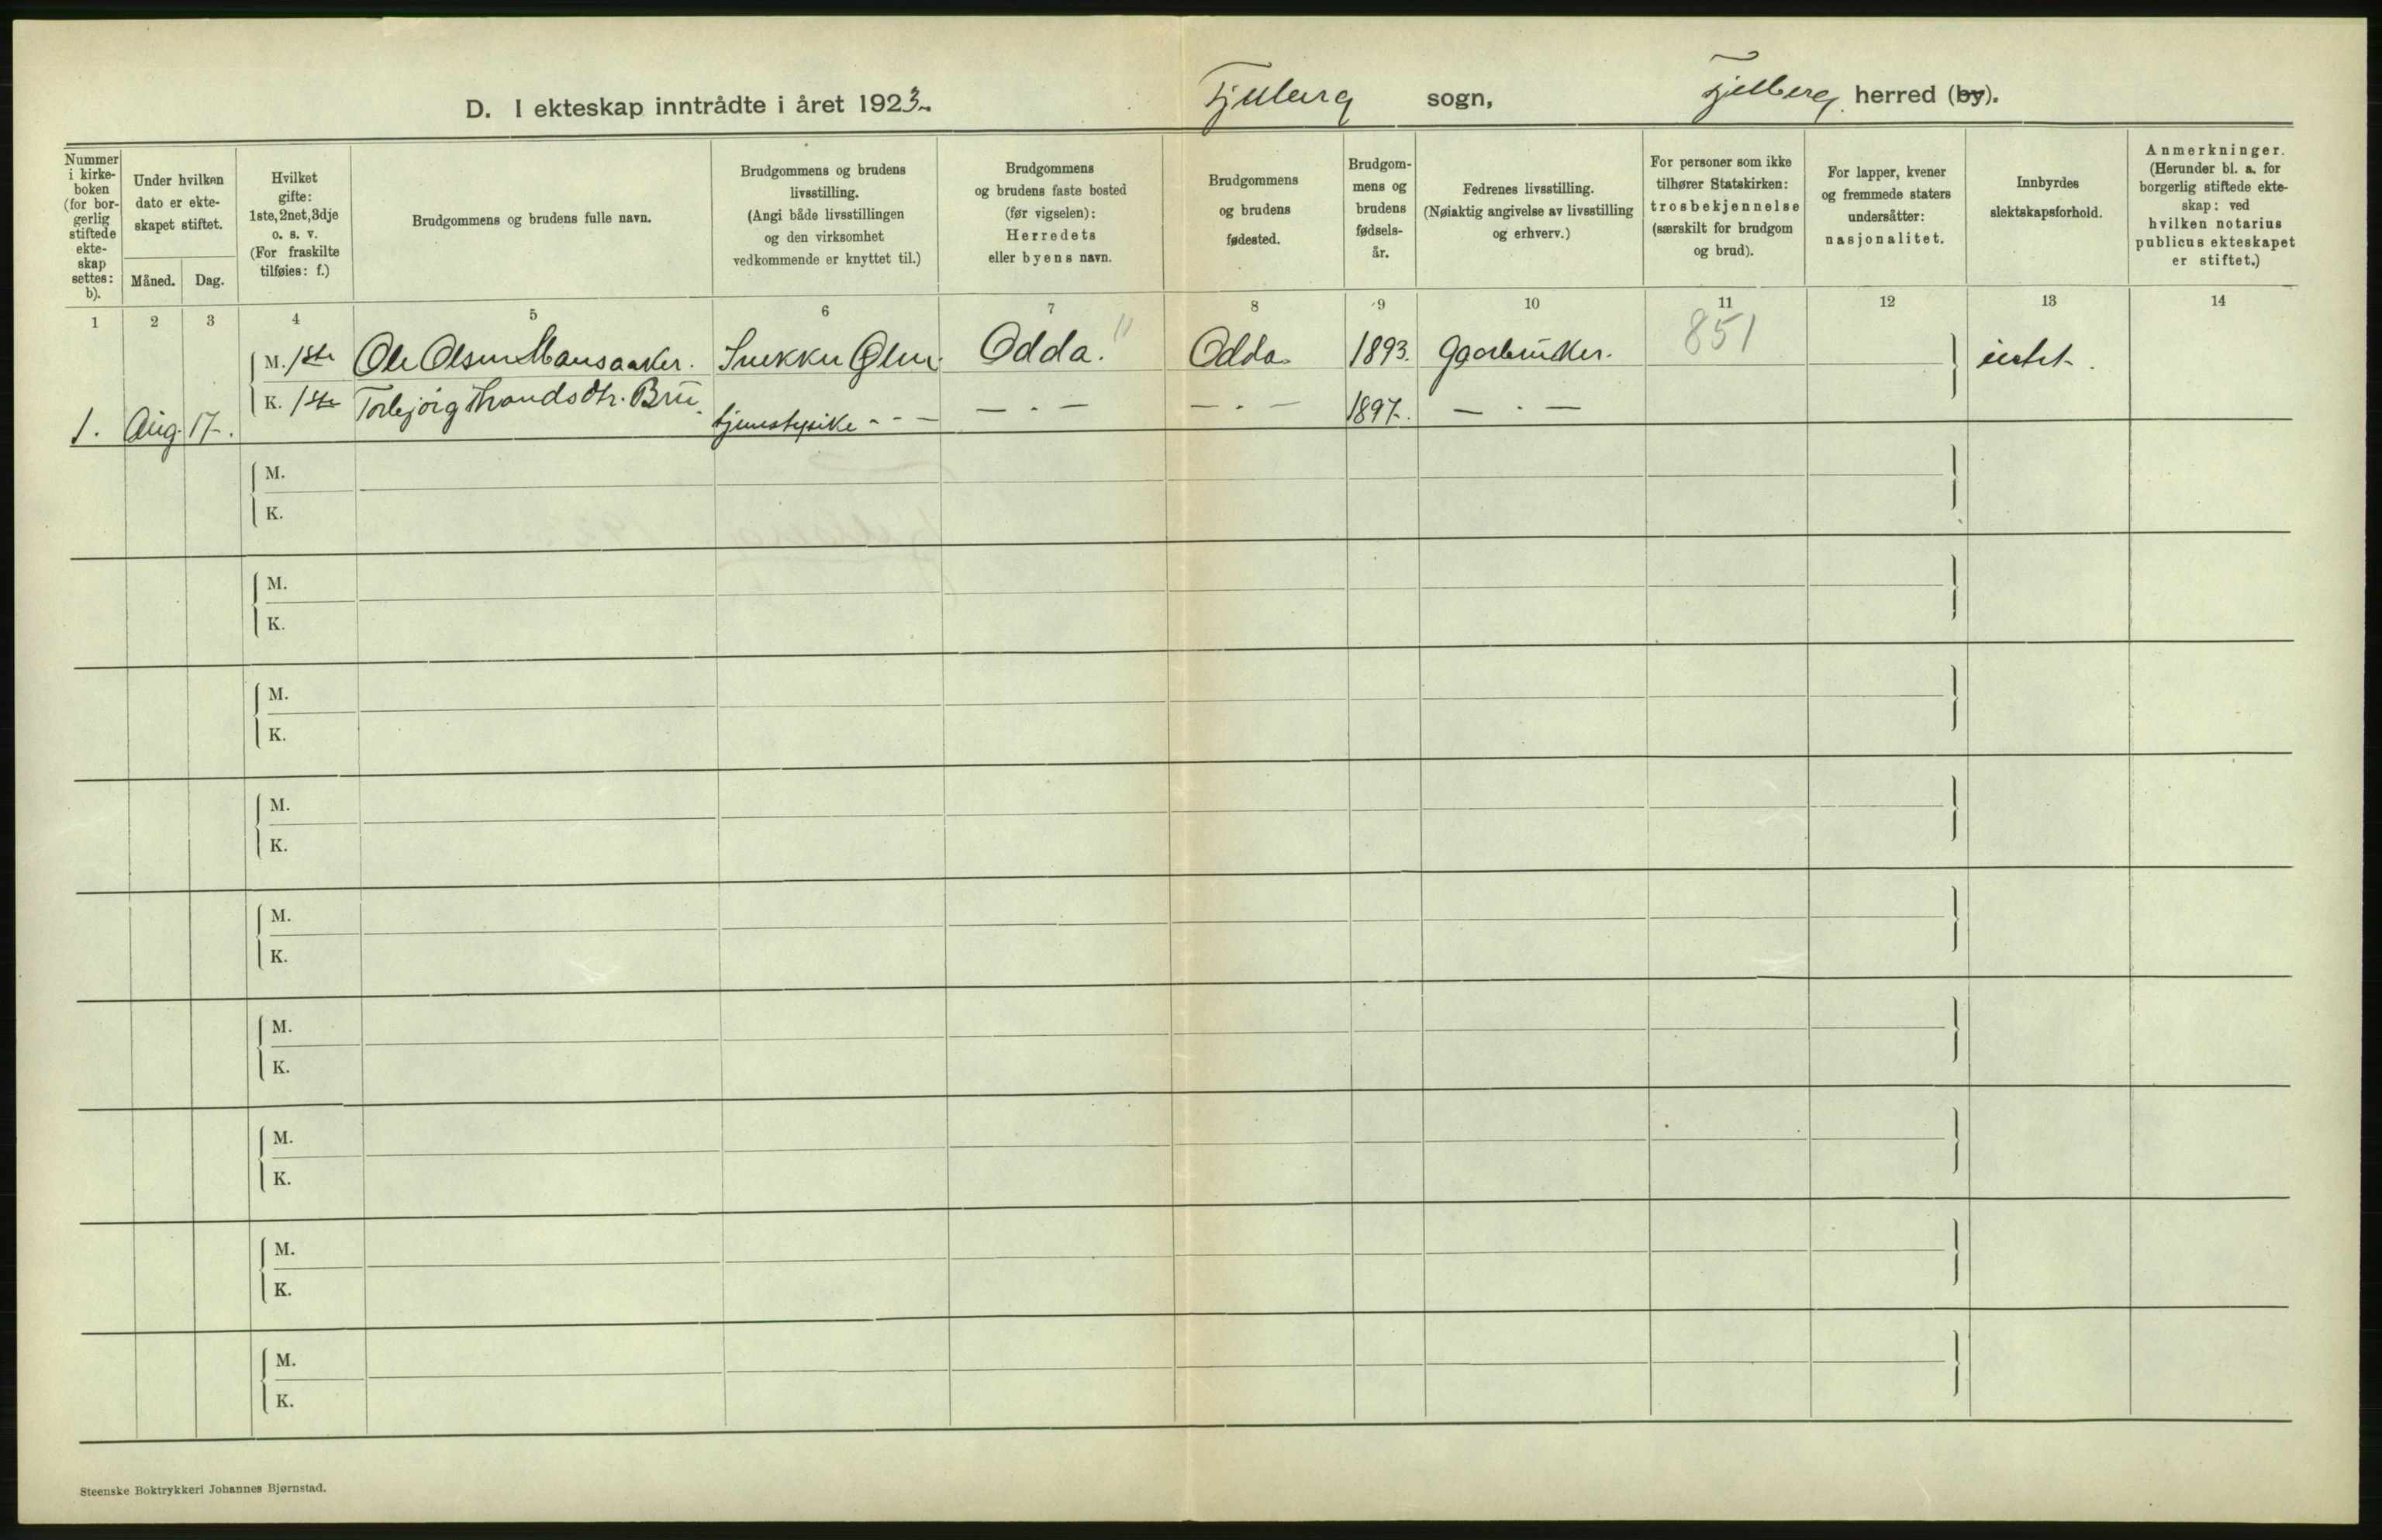 D. I ekteskap inntrådte i året 1923.
Fjelberg sogn, Fjelberg herred (by).
Nummer
i kirke-
boken
(for bor-
gerlig
stiftede
ekte-
skap
settes:
b).
Under hvilken
dato er ekte-
skapet stiftet.
Måned. Dag.
Hvilket
gifte:
1ste, 2net, 3dje
o. s. v.
(For fraskilte
tilføies: f.)
Brudgommens og brudens fulle navn.
Brudgommens og brudens
livsstilling.
(Angi både livsstillingen
og den virksomhet
vedkommende er knyttet til.)
Brudgommens
og brudens faste bosted
(før vigselen):
Herredets
eller byens navn.
Brudgommens
og brudens
fødested.
Brudgom-
mens og
brudens
fødsels-
år.
Fedrenes livsstilling.
(Nøiaktig angivelse av livsstilling
og erhverv.)
For personer som ikke
tilhører Statskirken:
trosbekjennelse
(særskilt for brudgom
og brud).
For lapper, kvener
og fremmede staters
undersåtter:
nasjonalitet.
Innbyrdes
slektskapsforhold.
Anmerkninger.
(Herunder bl. a. for
borgerlig stiftede ekte-
skap: ved
hvilken notarius
publicus ekteskapet
er stiftet.)
1 2 3 4 5 6 7 8 9 10 11 12 13 14
M. 1ste Ole Olsen Mansaaker. Snekker Odda. " Odda. 1893. Gaarbruker. 851 intet.
K. 1ste Torbjørg Trondsdtr. Brú. tjenestepike - - — — . — — . — 1897. — . —
1. Aug. 17.
M.
K.
M.
K.
M.
K.
M.
K.
M.
K.
M.
K.
M.
K.
M.
K.
M.
K.
Steenske Boktrykkeri Johannes Bjørnstad.